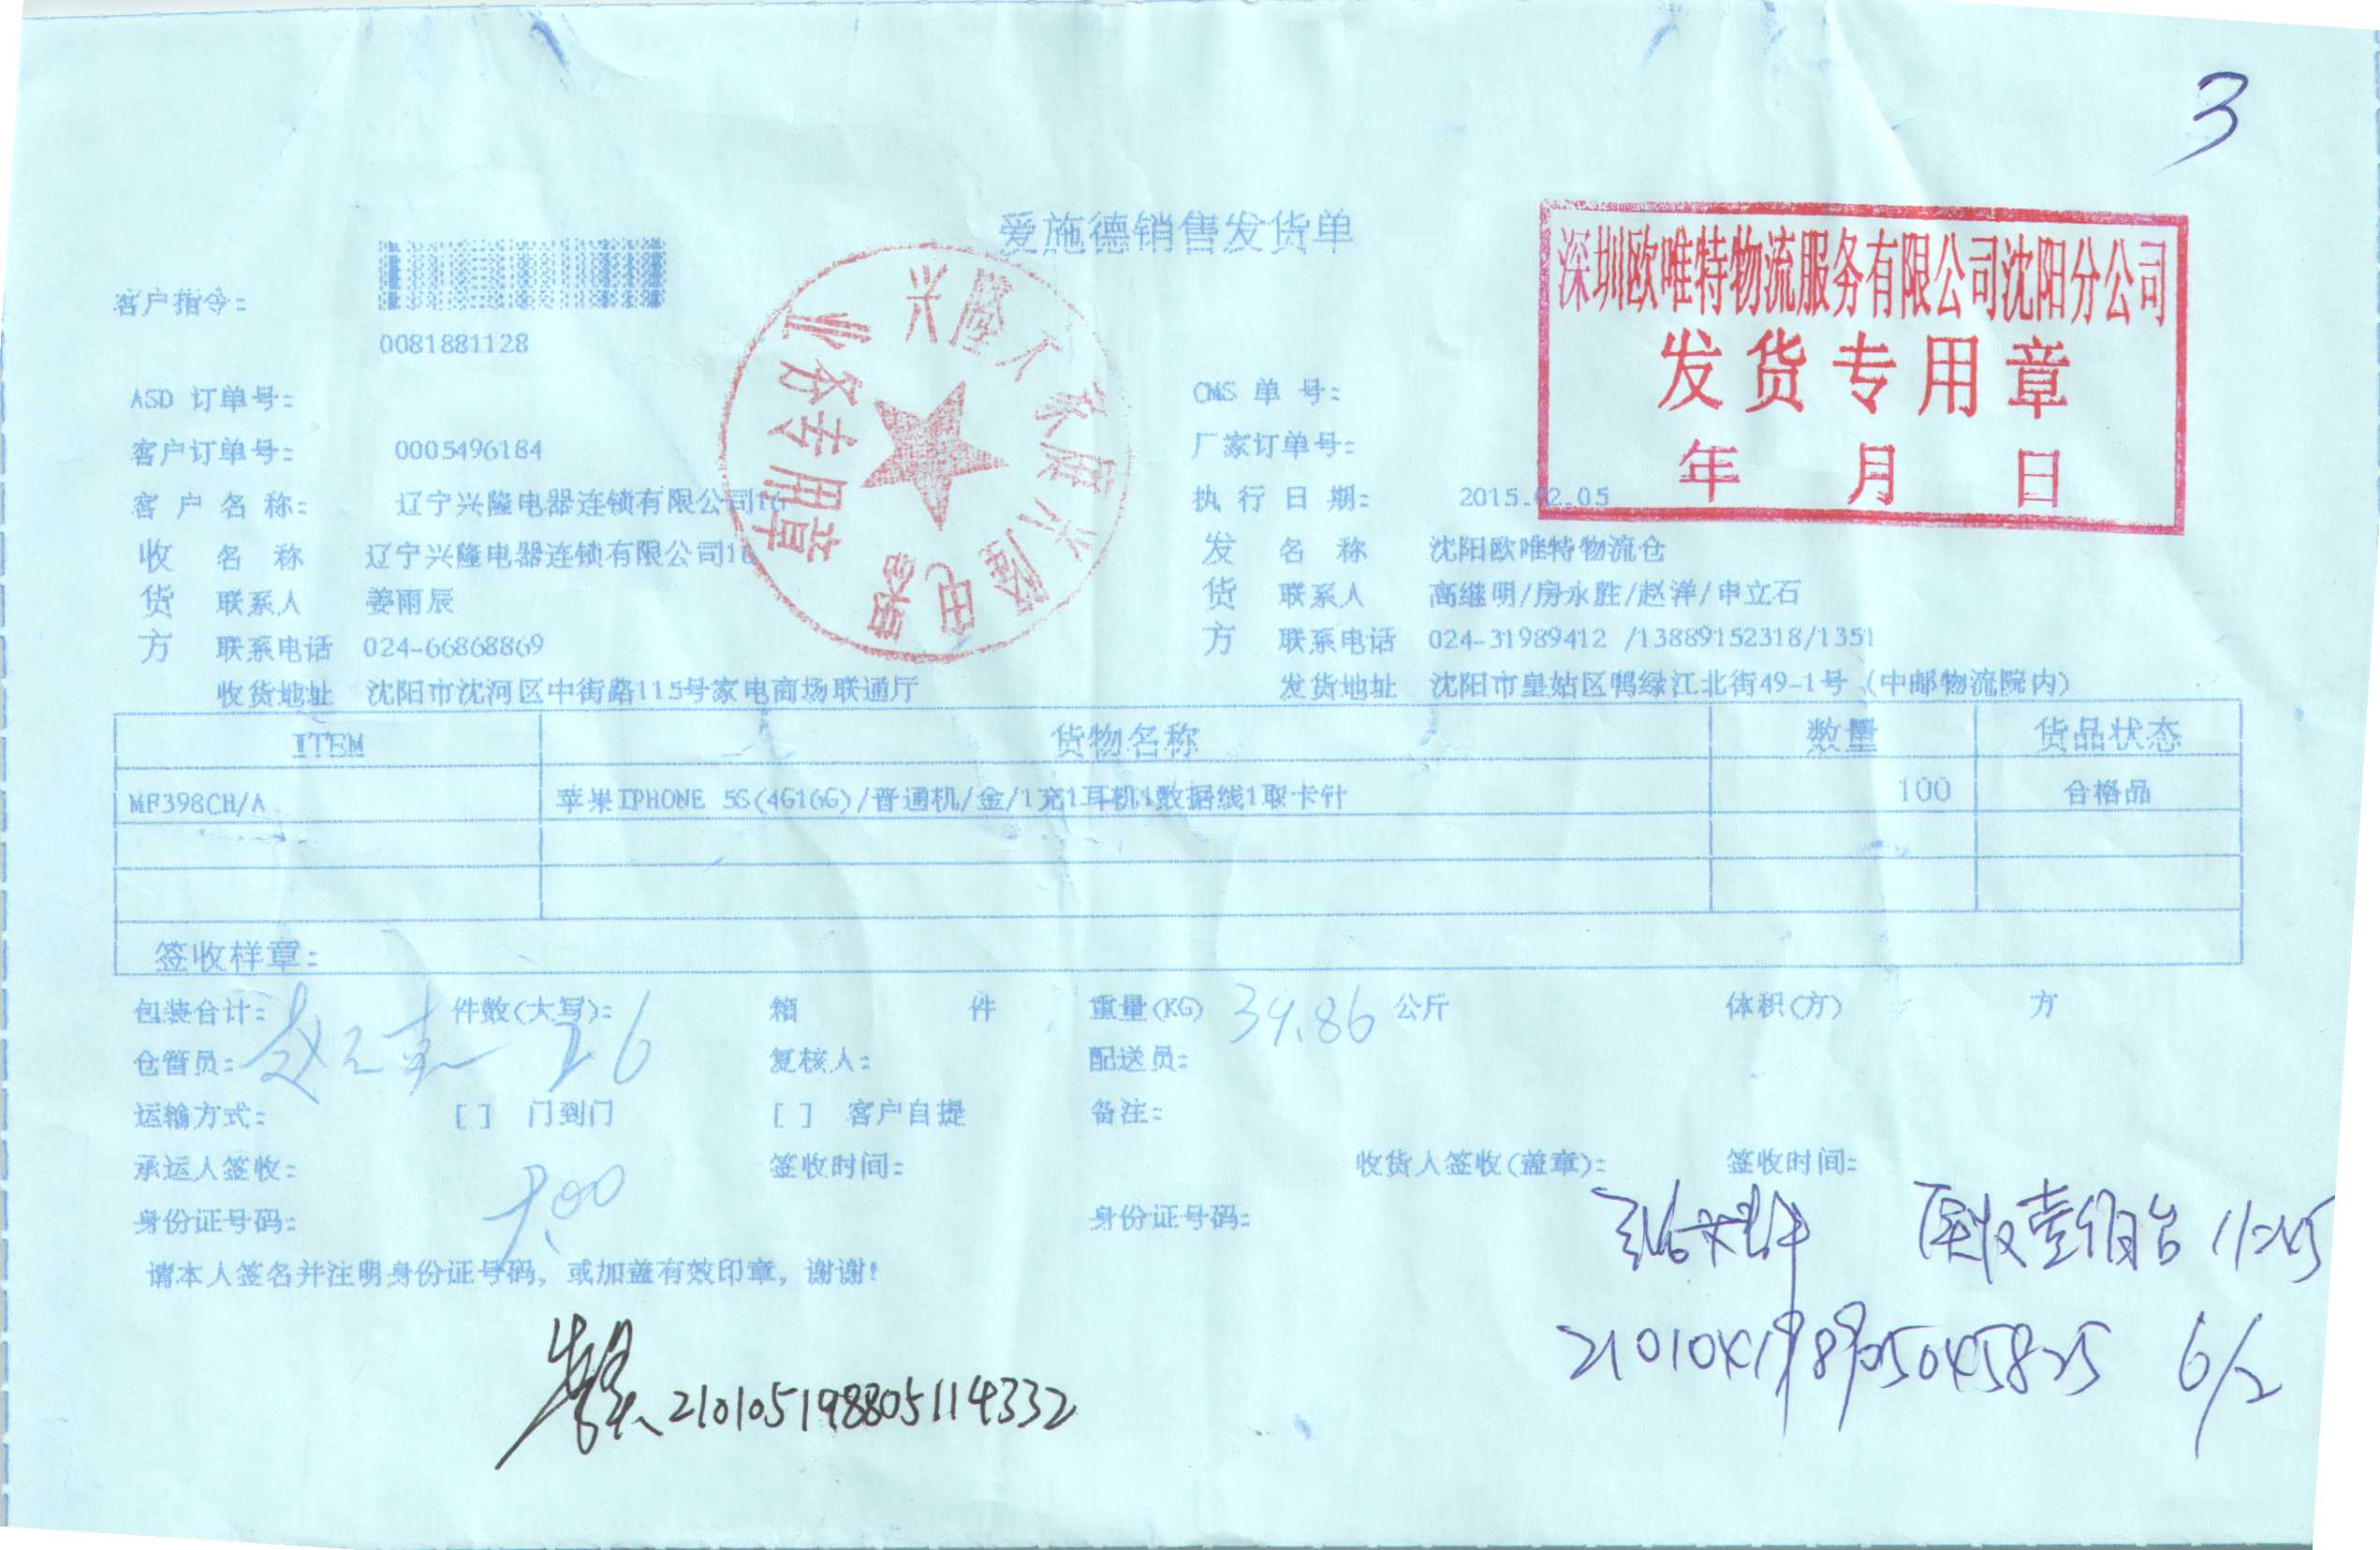 3
爱施德销售发货单
深圳欧唯特物流服务有限公司沈阳分公司
发货专用章
年 月 日
兴隆大家庭兴隆电器
业务专用章
客户指令:
0081881128
ASD 订单号: CMS 单 号:
客户订单号: 0005496184 厂家订单号:
客 户 名 称: 辽宁兴隆电器连锁有限公司16 执 行 日 期: 2015.02.05
收 名 称 辽宁兴隆电器连锁有限公司16 发 名 称 沈阳欧唯特物流仓
货 联系人 姜雨辰 货 联系人 高继明/房永胜/赵洋/申立石
方 联系电话 024-66868869 方 联系电话 024-31989412 /13889152318/1351
收货地址 沈阳市沈河区中街路115号家电商场联通厅 发货地址 沈阳市皇姑区鸭绿江北街49-1号 (中邮物流院内)
ITEM 货物名称 数量 货品状态
MF398CH/A 苹果IPHONE 5S(4G16G)/普通机/金/1充1耳机1数据线1取卡针 100 合格品
签收样章:
包装合计: 件数(大写): 26 箱 件 重量(KG) 39.86 公斤 体积(方) 方
仓管员: 复核人: 配送员:
运输方式: [ ] 门到门 [ ] 客户自提 备注:
承运人签收: 签收时间: 收货人签收(盖章): 签收时间:
身份证号码: 身份证号码:
实收壹佰台 11:45
请本人签名并注明身份证号码, 或加盖有效印章, 谢谢!
210105198805114332
6/2